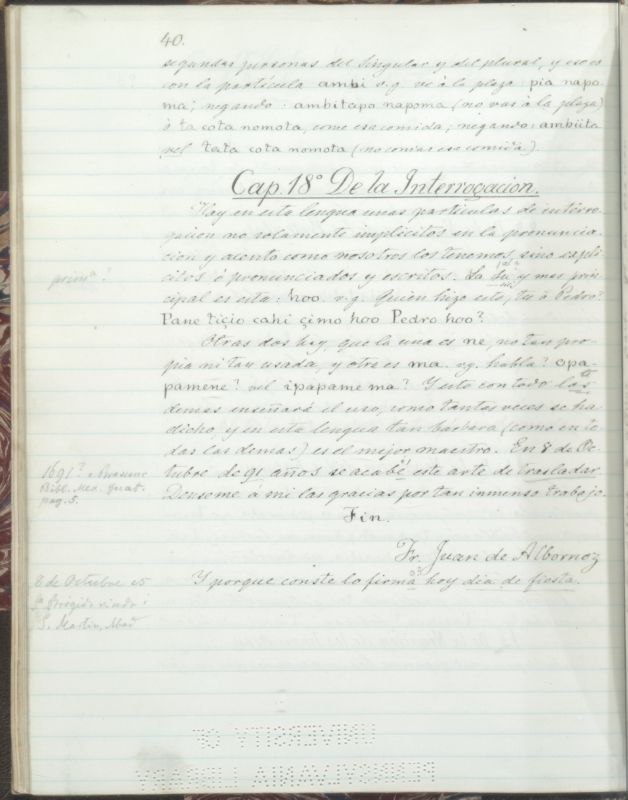 40.
segundas personas del Singular y del plural, y eso es
con la partícula ambi v.g. ve á la plaza pia napo-
ma; negando: ambitapo napoma (no vas á la plaza)
ó ta cota nomota, come esa comida; negando: ambiita
vel tata cota nomota (no comas ese comida.).
Cap. 18º De la Interrogacion.
Hay en esta lengua unas particulas de interro-
gacion no solamente implicitos en la pronuncia-
cion y acento como nosotros los tenemos, sino expli-
citos ó pronunciados y escritos. La y mas prin-
prinª?
cipal es esta: hoo. v.g. Quien hizo esto, tu ó Pedro?
Pane tiçio cahi çimo hoo Pedro hoo?
Otras dos hay, que la una es ne, no tan pro-
pia ni tan usada, y otra es ma. vg. habla? opa-
pamene? vel ipapame ma? Y esto con todo las
demas enseñará el uso, como tantas veces se ha
dicho, y en esta lengua tan barbara (como en to
das las demas) es el mejor maestro. En 8 de Oc-
tubre de 91 años se acabó este arte de trasladar
1691?
Bibl. Mex. Guat.
pag. 5.
Denseme á mi las gracias por tan inmenso trabajo.
Fin.
Fr. Juan de Albornoz
Y porque conste lo firma hoy dia de fiesta.
8 de Octubre es
Sª Brigida viuda i
S. Martin, Abad
UNIVERSITY OF
PENNSYLVANIA LIBRARY